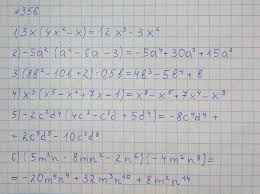 №356.
1) 3x(4x²-x)=12x³-3x²
2) -5a²(a²-6a-3)=-5a⁴+30a³+15a²
3) (8b²-10b+2)·0,5b=4b³-5b²+b
4) x³(x⁵-x²+7x-1)=x⁸-x⁵+7x⁴-x³
5) -2c²d⁴(4c²-c³d+5d⁴)=-8c⁴d⁴+
+2c⁵d⁵-10c²d⁸
6) (5m³n-8mn²-2n⁶)(-4m²n⁸)=
=-20m⁵n⁹+32m³n¹⁰+8m²n¹⁴